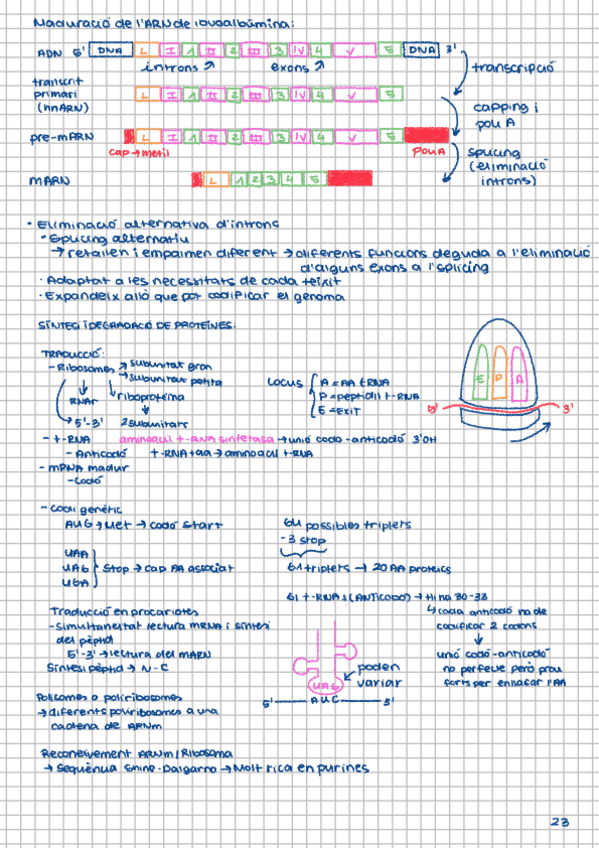 Maduració de l'ARN de l'ovoalbúmina:
ADN 5' DNA L I 1 II 2 III 3 IV 4 V 5 DNA 3'
introns ↗ exons ↗
transcripció
transcrit
primari
(hnARN)
L I 1 II 2 III 3 IV 4 V 5
capping i
poli A
pre-mARN L I 1 II 2 III 3 IV 4 V 5
cap → metil
Poli A
splicing
(eliminació
introns)
mARN L 1 2 3 4 5
· Eliminació alternativa d'introns
· Splicing alternatiu
→ retallen i empalmen diferent → diferents funcions deguda a l'eliminació
d'alguns exons a l'splicing
· Adaptat a les necessitats de cada teixit
· Expandeix allò que pot codificar el genoma
SÍNTESI I DEGRADACIÓ DE PROTEÏNES:
TRADUCCIÓ:
- Ribosomes → subunitat gran
→ subunitat petita
RNAr
riboproteïna
→ 5'-3'
2 subunitats
Locus
A = AA tRNA
P = peptidil t-RNA
E = EXIT
E P A
5' 3'
- t-RNA aminoacil t-RNA sintetasa → unió codó-anticodó 3'OH
- Anticodó t-RNA + aa → aminoacil t-RNA
- mRNA madur
- Codó
- Codi genètic
AUG → Met → codó Start
UAA
UAG
UGA
Stop → cap AA associat
64 possibles triplets
- 3 stop
61 triplets → 20 AA proteics
61 t-RNAs (ANTICODÓ) → Hi ha 30-33
↳ cada anticodó ha de
codificar 2 codons
↓
unió codó-anticodó
no perfecte però prou
forts per enllaçar l'AA
Traducció en procariotes
- Simultaneïtat lectura mRNA i síntesi
del pèptid
5'-3' → lectura del mARN
Síntesi pèptid → N-C
UAG
poden
variar
5' AUC 3'
Polisomes o poliribosomes
→ diferents poliribosomes a una
cadena de ARNm
Reconeixement ARNm/Ribosoma
→ Seqüència Shine-Dalgarno → Molt rica en purines
23